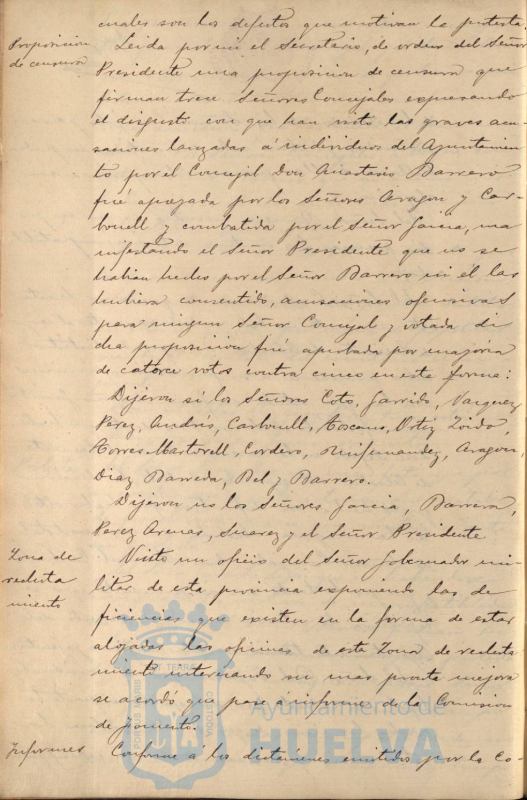 cuales son los defectos que motivan la protesta.
Proposicion de censura
Leida por mi el Secretario, de orden del Señor
Presidente una proposicion de censura que
firman trece Señores Concejales expresando
el disgusto con que han visto las graves acu-
saciones lanzadas á individuos del Ayuntamien-
to por el Concejal Don Anastasio Barrero
fué apoyada por los Señores Aragon y Car-
bonell y combatida por el Señor Garcia, ma
nifestando el Señor Presidente que no se
habian hecho por el Señor Barrero ni él las
hubiera consentido, acusaciones ofensivas
para ningun Señor Concejal y votada di
cha proposicion fué aprobada por mayoria
de catorce votos contra cinco en esta forma:
Dijeron si los Señores Coto, Garrido, Vazquez
Perez, Andrés, Carbonell, Toscano, Ortiz Zoido,
Torres Martorell, Cordero, Ruifernandez, Aragon,
Diaz Barreda, Bel y Barrero.
Dijeron no los Señores Garcia, Barrera,
Perez Arenas, Suarez y el Señor Presidente
Zona de
recluta
miento
Visto un oficio del Señor Gobernador mi-
litar de esta provincia exponiendo las de
ficiencias que existen en la forma de estar
alojadas las oficinas de esta Zona de recluta
miento interesando su mas pronta mejora
se acordó que pase a informe de la Comision
de Fomento.
Informes
Conforme á los dictámenes emitidos por la Co-
Ayuntamiento de
HUELVA